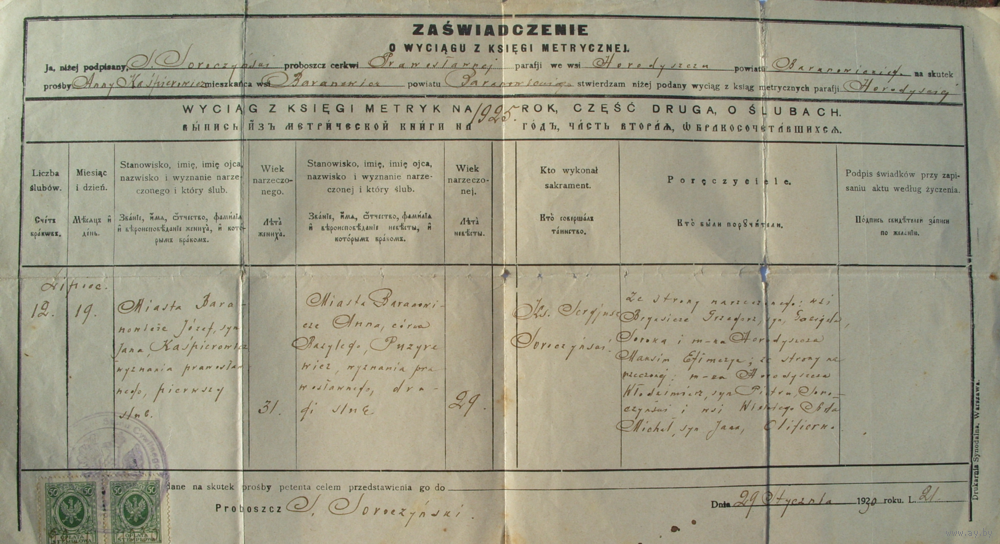 ZAŚWIADCZENIE
O WYCIĄGU Z KSIĘGI METRYCZNEJ.
Ja, niżej podpisany, S. Soroczyński proboszcz cerkwi Prawosławnej parafji we wsi Horodyszcze powiatu Baranowickiego na skutek
prośby Anny Kaśpierowicz mieszkańca wsi Baranowicz powiatu stwierdzam niżej podany wyciąg z ksiąg metrycznych parafji
WYCIĄG Z KSIĘGI METRYK NA 1925 ROK, CZĘŚĆ DRUGA, O ŚLUBACH.
ВЫПИСЬ ИЗЪ МЕТРИЧЕСКОЙ КНИГИ НА ГОДЪ, ЧАСТЬ ВТОРАЯ, Ѡ БРАКОСОЧЕТАВШИХСЯ.
Liczba ślubów.
Miesiąc i dzień.
Stanowisko, imię, imię ojca, nazwisko i wyznanie narzeczonego i który ślub.
Wiek narzeczonego.
Stanowisko, imię, imię ojca, nazwisko i wyznanie narzeczonej i który ślub.
Wiek narzeczonej.
Kto wykonał sakrament.
Poręczyciele.
Podpis świadków przy zapisaniu aktu według życzenia.
Счетъ браковъ.
Мѣсяцъ и день.
Званіе, имя, ѡтчество, фамилія и вѣроисповѣданіе жениха, и которымъ бракомъ.
Лѣта жениха.
Званіе, имя, ѡтчество, фамилія и вѣроисповѣданіе невѣсты, и которымъ бракомъ.
Лѣта невѣсты.
Кто совершалъ таинство.
Кто были поручители.
Подпись свидѣтелей записи по желанію.
Lipiec.
12.
19.
Miasta Baranowicze Józef, syn
Jana, Kaśpierowicz
wyznania prawosławnego, pierwszy
ślub.
31.
Miasta Baranowicze Anna, córka
Bazylego, Puzyrewicz, wyznania prawosławnego, drugi ślub
29.
Ks. Sergjusz
Soroczyński
Ze strony narzeczonego: wsi
Soroka i m-ka Horodyszcze
Maksim ze strony narzeczonej: m-ka Horodyszcze
Włodzimierz, syn Piotra, Soroczyński i wsi
Michał, syn Jana,
dane na skutek prośby petenta celem przedstawienia go do
Proboszcz S. Soroczyński.
Dnia 29 Stycznia 1930 roku. L. 21.
Drukarnia Synodalna, Warszawa.